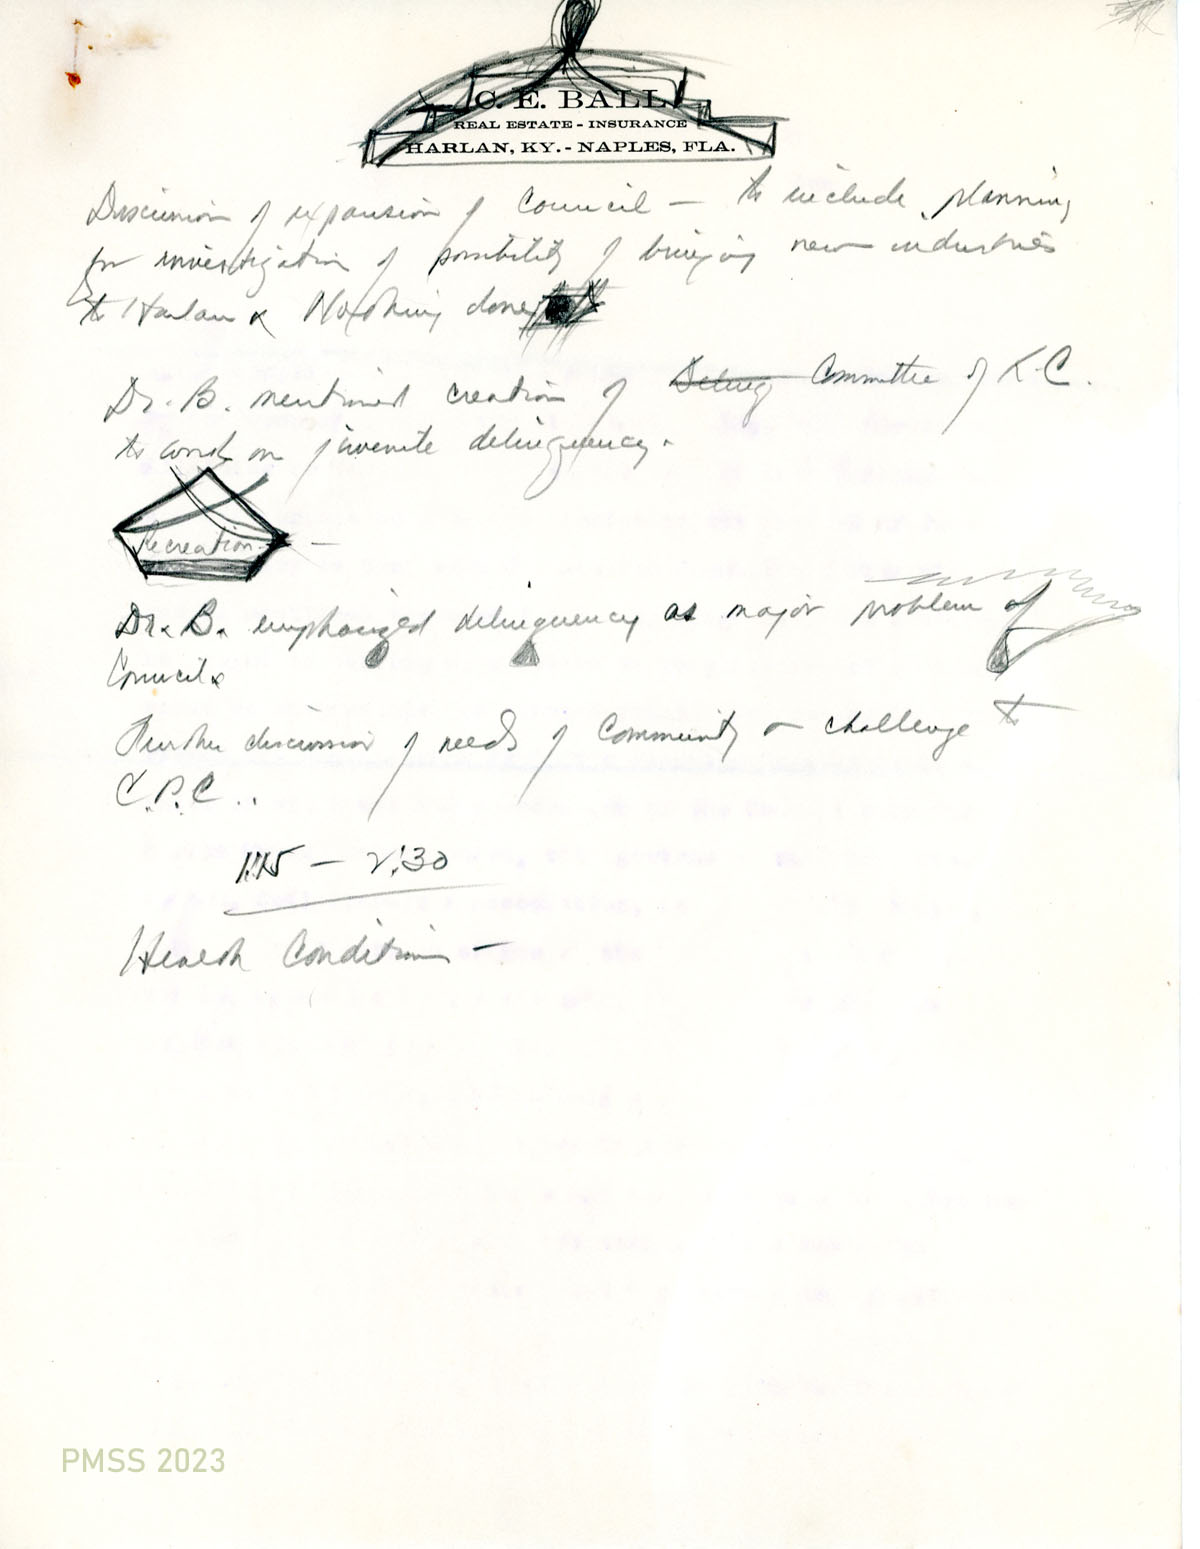 C. E. BALL
REAL ESTATE - INSURANCE
HARLAN, KY. - NAPLES, FLA.
Discussion of expansion of Council — to include planning
for investigation of possibility of bringing new industries
to Harlan. Nothing done
Dr. B. mentioned creation of Committee of K.C.
to work on juvenile delinquency.
Recreation -
Dr. B. emphasized delinquency as major problem of
Council.
Further discussion of needs of Community & challenge to
C.P.C..
— 2:30
Health Conditions —
PMSS 2023